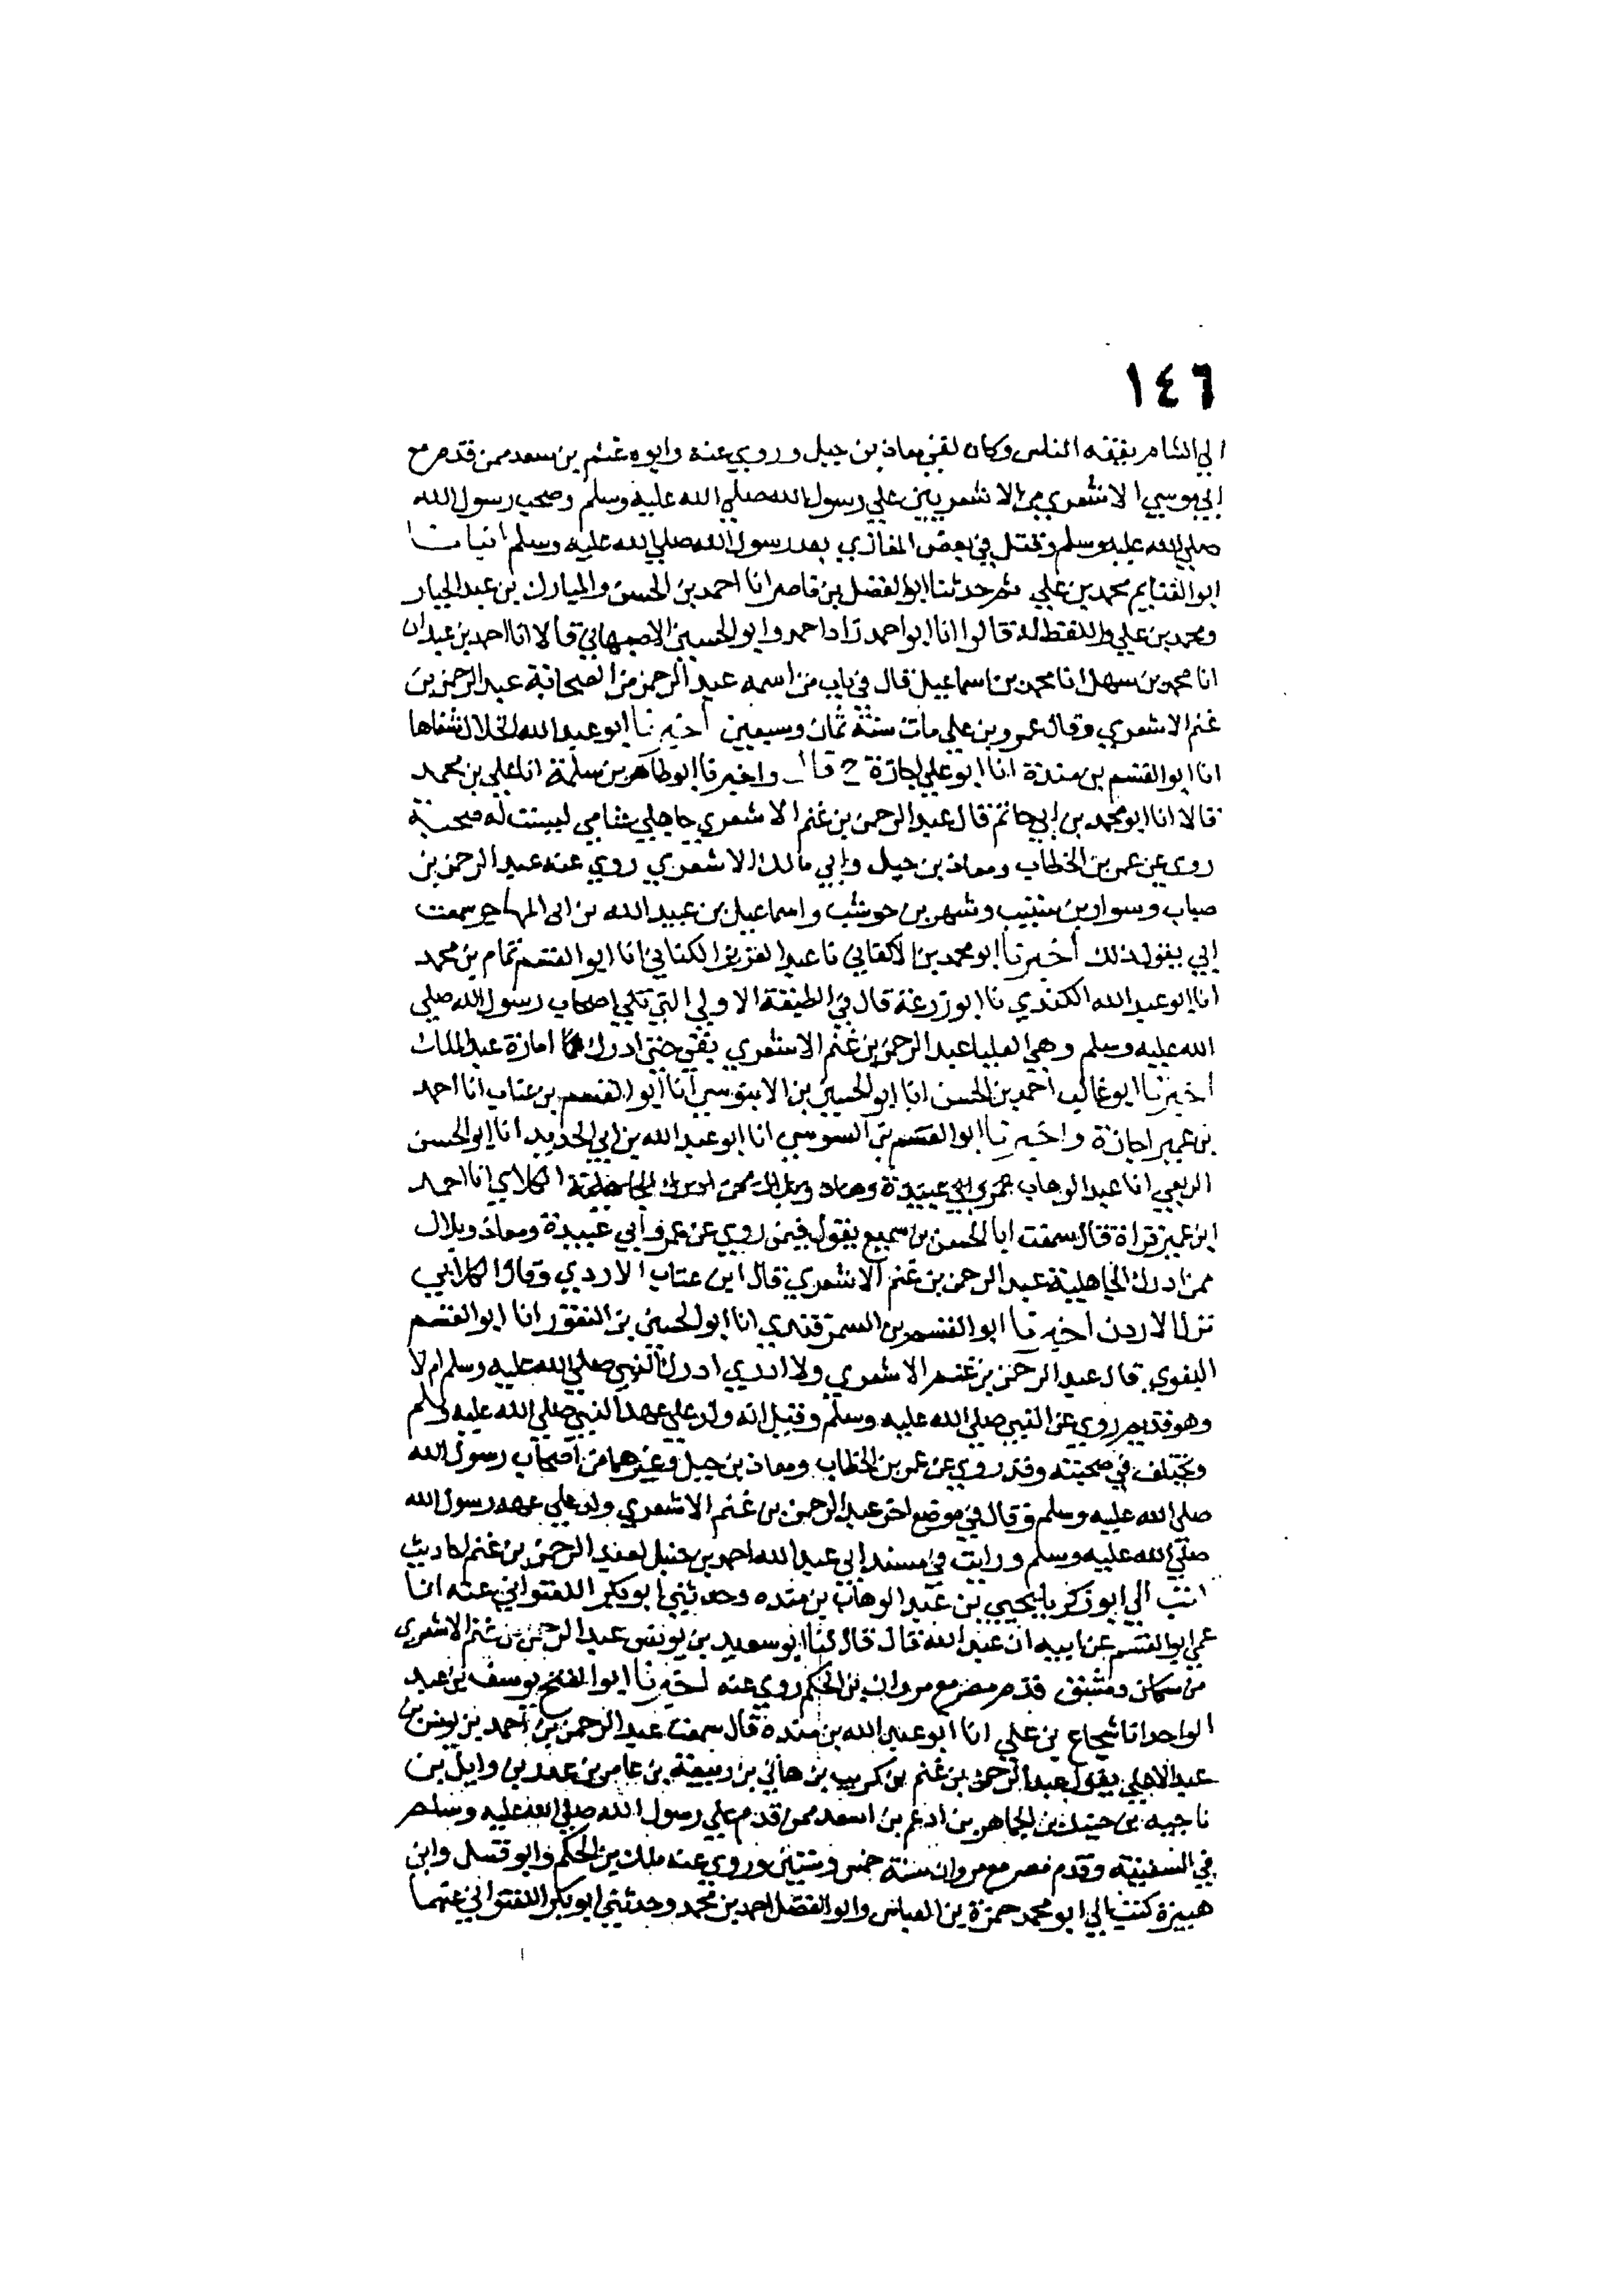 ١٤٦
الي الشام يفقه الناس وكان لقي معاذ بن جبل وروي عنه وابوه غنم بن سعد ممن قدم مع
ابي موسي الاشعري من الاشعريين علي رسول الله صلي الله عليه وسلم وصحب رسول الله
صلي الله عليه وسلم وقتل في بعض المغازي بعد رسول الله صلي الله عليه وسلم انبانا
ابو الغنايم محمد بن علي ثم حدثنا ابو الفضل بن ناصر انا احمد بن الحسن والمبارك بن عبد الجبار
ومحمد بن علي واللفظ له قالوا انا ابو احمد زاد احمد وابو الحسين الاصبهاني قالا انا احمد بن عبدان
انا محمد بن سهل انا محمد بن اسماعيل قال في باب من اسمه عبد الرحمن من الصحابة عبد الرحمن بن
غنم الاشعري وقال عمرو بن علي مات سنة ثمان وسبعين اخبرنا ابو عبد الله الخلال شفاها
انا ابو القسم بن مندة انا ابو علي اجازة ح قال واخبرنا ابو طاهر بن سلمة انا علي بن محمد
قالا انا ابو محمد بن ابي حاتم قال عبد الرحمن بن غنم الاشعري جاهلي شامي ليست له صحبة
روي عن عمر بن الخطاب ومعاذ بن جبل وابي مالك الاشعري روي عنه عبد الرحمن بن
صباب وسوار بن شبيب وشهر بن حوشب واسماعيل بن عبيد الله بن ابي المهاجر سمعت
ابي يقول ذلك اخبرنا ابو محمد بن الاكفاني نا عبد العزيز الكتاني انا ابو القسم تمام بن محمد
انا ابو عبد الله الكندي نا ابو زرعة قال في الطبقة الاولي التي تلي اصحاب رسول الله صلي
الله عليه وسلم وهي العليا عبد الرحمن بن غنم الاشعري بقي حتي ادرك امارة عبد الملك
اخبرنا ابو غالب احمد بن الحسن انا ابو الحسين بن الابنوسي انا ابو القسم بن عتاب انا احمد
بن عمير اجازة واخبرنا ابو القسم بن السوسي انا ابو عبد الله بن ابي الحديد انا ابو الحسن
الربعي انا عبد الوهاب الكلابي انا احمد
ابن عمير قراة قال سمعت ابا الحسن بن سميع يقول فيمن روي عن عمر وابي عبيدة ومعاذ وبلال
ممن ادرك الجاهلية عبد الرحمن بن غنم الاشعري قال ابن عتاب الازدي وقال الكلابي
نزل الاردن اخبرنا ابو القسم بن السمرقندي انا ابو الحسين بن النقور انا ابو القسم
البغوي قال عبد الرحمن بن غنم الاشعري ولا ادري ادرك النبي صلي الله عليه وسلم ام لا
وهو قديم روي عن النبي صلي الله عليه وسلم وقيل انه ولد علي عهد النبي صلي الله عليه وسلم
ويختلف في صحبته وقد روي عن عمر بن الخطاب ومعاذ بن جبل وغيرهما من اصحاب رسول الله
صلي الله عليه وسلم وقال في موضع اخر عبد الرحمن بن غنم الاشعري ولد علي عهد رسول الله
صلي الله عليه وسلم ورايت في مسند ابي عبد الله احمد بن حنبل لعبد الرحمن بن غنم احاديث
كتب الي ابو زكريا يحيي بن عبد الوهاب بن منده وحدثني ابو بكر اللفتواني عنه انا
عمي ابو القسم عن ابيه ابن عبد الله قال قال لنا ابو سعيد بن يونس عبد الرحمن بن غنم الاشعري
من سكان دمشق قدم مصر مع مروان بن الحكم روي عنه اخبرنا ابو الفتح يوسف بن عبد
الواحد انا شجاع بن علي انا ابو عبد الله بن منده قال سمعت عبد الرحمن بن احمد بن يونس بن
عبد الاعلي يقول عبد الرحمن بن غنم بن كريب بن هاني بن ربيعة بن عامر بن عدي بن وايل بن
ناجيه بن حنيك بن الجماهر بن ادعم بن اسعد ممن قدم علي رسول الله صلي الله عليه وسلم
في السفينة وقدم مصر مع مروان سنة خمس وستين وروي عنه ملك بن الحكم وابو قسل وابن
هبيرة كتب الي ابو محمد حمزة بن العباس وابو الفضل احمد بن محمد وحدثني ابو بكر اللفتواني عنهما